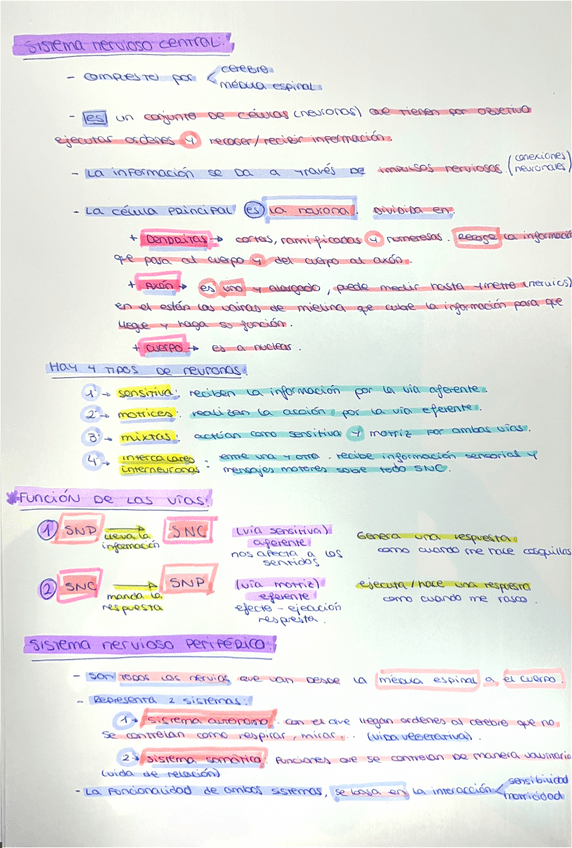 Sistema nervioso central:
- compuesto por < cerebro
médula espinal
- es un conjunto de células (neuronas) que tienen por objetivo
ejecutar ordenes y recoger/recibir información.
- La información se da a través de impulsos nerviosos (conexiones
neuronales)
- La célula principal es la neurona. Dividida en:
+ Dendritas → cortas, ramificadas y numerosas. Recoge la información
que pasa al cuerpo y del cuerpo al axón.
+ Axón → es uno y alargado, puede medir hasta 1 metro (nervios)
en el están las vainas de mielina que cubre la información para que
llegue y haga su función.
+ cuerpo → es a nuclear.
Hay 4 tipos de neuronas:
1 → sensitiva: reciben la información por la vía aferente.
2 → motrices: realizan la acción por la vía eferente.
3 → mixtas: actúan como sensitiva y motriz por ambas vías.
4 → intercalares
interneuronas: entre una y otra. recibe información sensorial y
mensajes motores sobre todo SNC.
*Función de las vías:
1 SNP → SNC (vía sensitiva) Genera una respuesta
lleva la información aferente como cuando me hace cosquillas
nos afecta a los
sentidos
2 SNC → SNP (vía motriz) ejecuta/hace una respuesta
manda la respuesta eferente como cuando me rasco.
efecto - ejecución
respuesta.
Sistema nervioso Periférico:
- Son todos los nervios que van desde la médula espinal a el cuerpo.
- Representa 2 sistemas:
1 → sistema autónomo: con el que llegan ordenes al cerebro que no
se controlan como respirar, mirar... (vida vegetativa).
2 → Sistema somático: funciones que se controlan de manera voluntaria
(vida de relación)
- La funcionalidad de ambos sistemas, se basa en la interacción < sensibilidad
motricidad